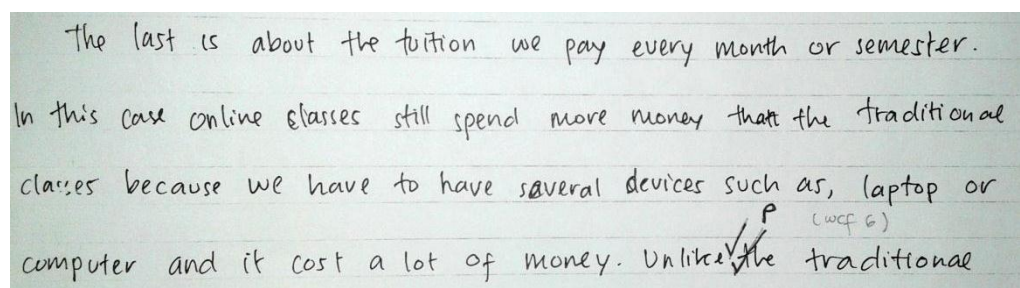 The last is about the tuition we pay every month or semester.
In this case online classes still spend more money than the traditional
classes because we have to have several devices such as, laptop or
P (wcf 6)
computer and it cost a lot of money. Unlike the traditional